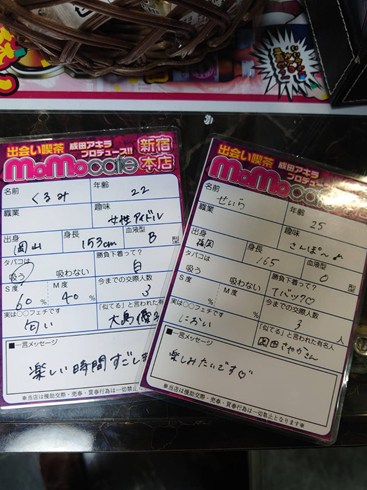 出会い喫茶 成田アキラ
プロデュース!!
MoMocafe
新宿
本店
名前 くるみ
年齢 22
職業
趣味 女性アイドル
出身 岡山
身長 153cm
血液型 B型
タバコは
吸う 吸わない
勝負下着って? 白
S度 60%
M度 40%
今までの交際人数 3
実は○○フェチです 匂い
「似てる」と言われた有名人
大島優子
一言メッセージ
楽しい時間すごしま
※当店は援助交際・売春・買春行為は一切禁止
出会い喫茶 成田アキラ
プロデュース!!
MoMocafe
名前 せいら
年齢 25
職業
趣味 さんぽ〜よ
出身
身長 165
血液型 O型
タバコは
吸う 吸わない
勝負下着って? Tバック♡
S度
M度
今までの交際人数 3人
実は○○フェチです におい
「似てる」と言われた有名人
一言メッセージ
楽しみたいです♡
※当店は援助交際・売春・買春行為は一切禁止となります※